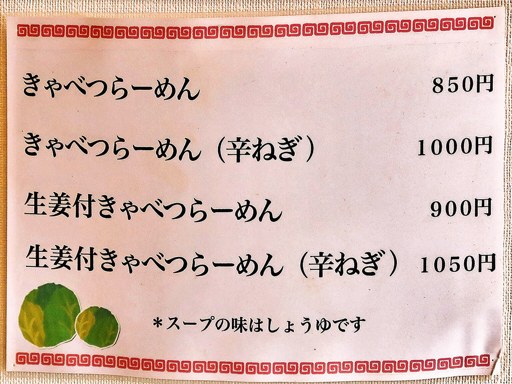 きゃべつらーめん 850円
きゃべつらーめん（辛ねぎ） 1000円
生姜付きゃべつらーめん 900円
生姜付きゃべつらーめん（辛ねぎ） 1050円
＊スープの味はしょうゆです